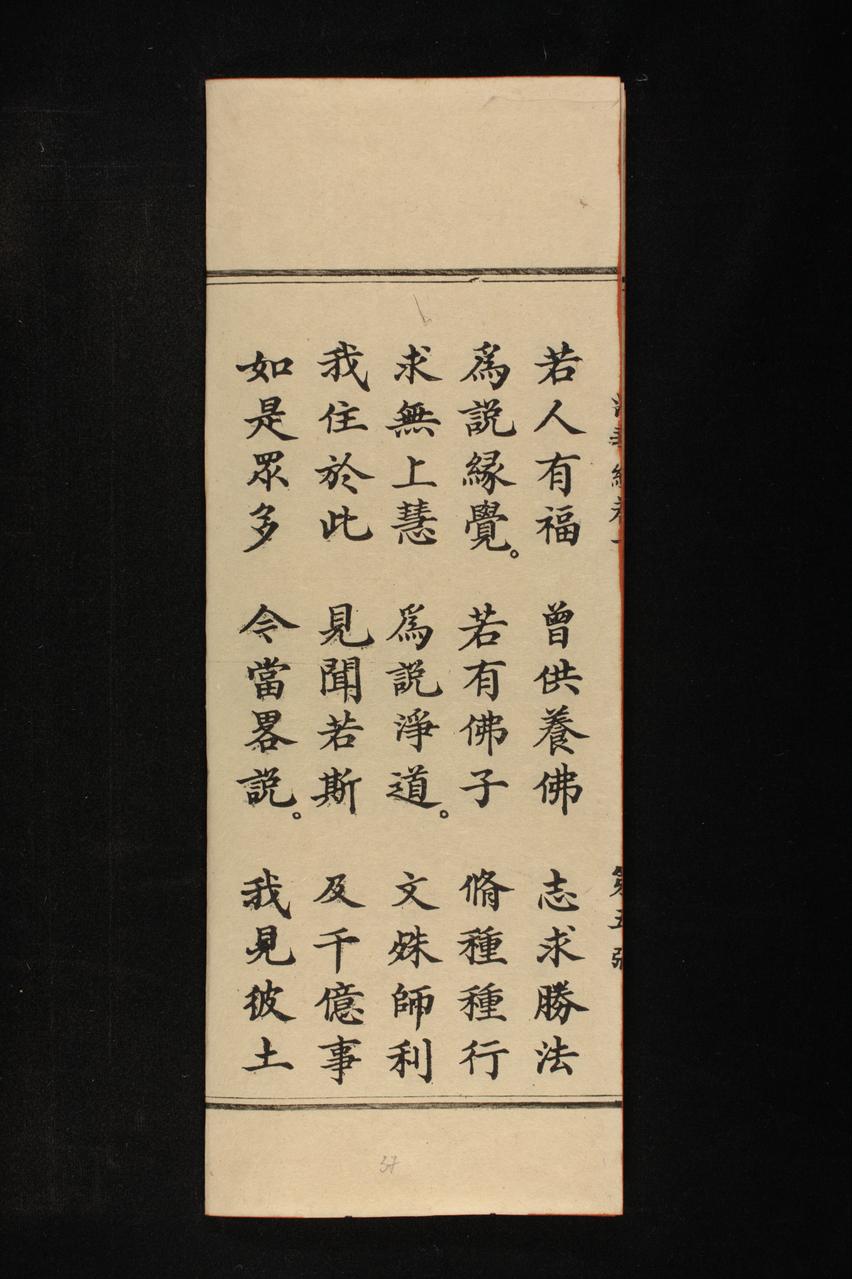 若人有福 曾供養佛 志求勝法
爲説緣覺。 若有佛子 脩種種行
求無上慧 爲説淨道。 文殊師利
我住於此 見聞若斯 及千億事
如是眾多 今當畧説。 我見彼土
37